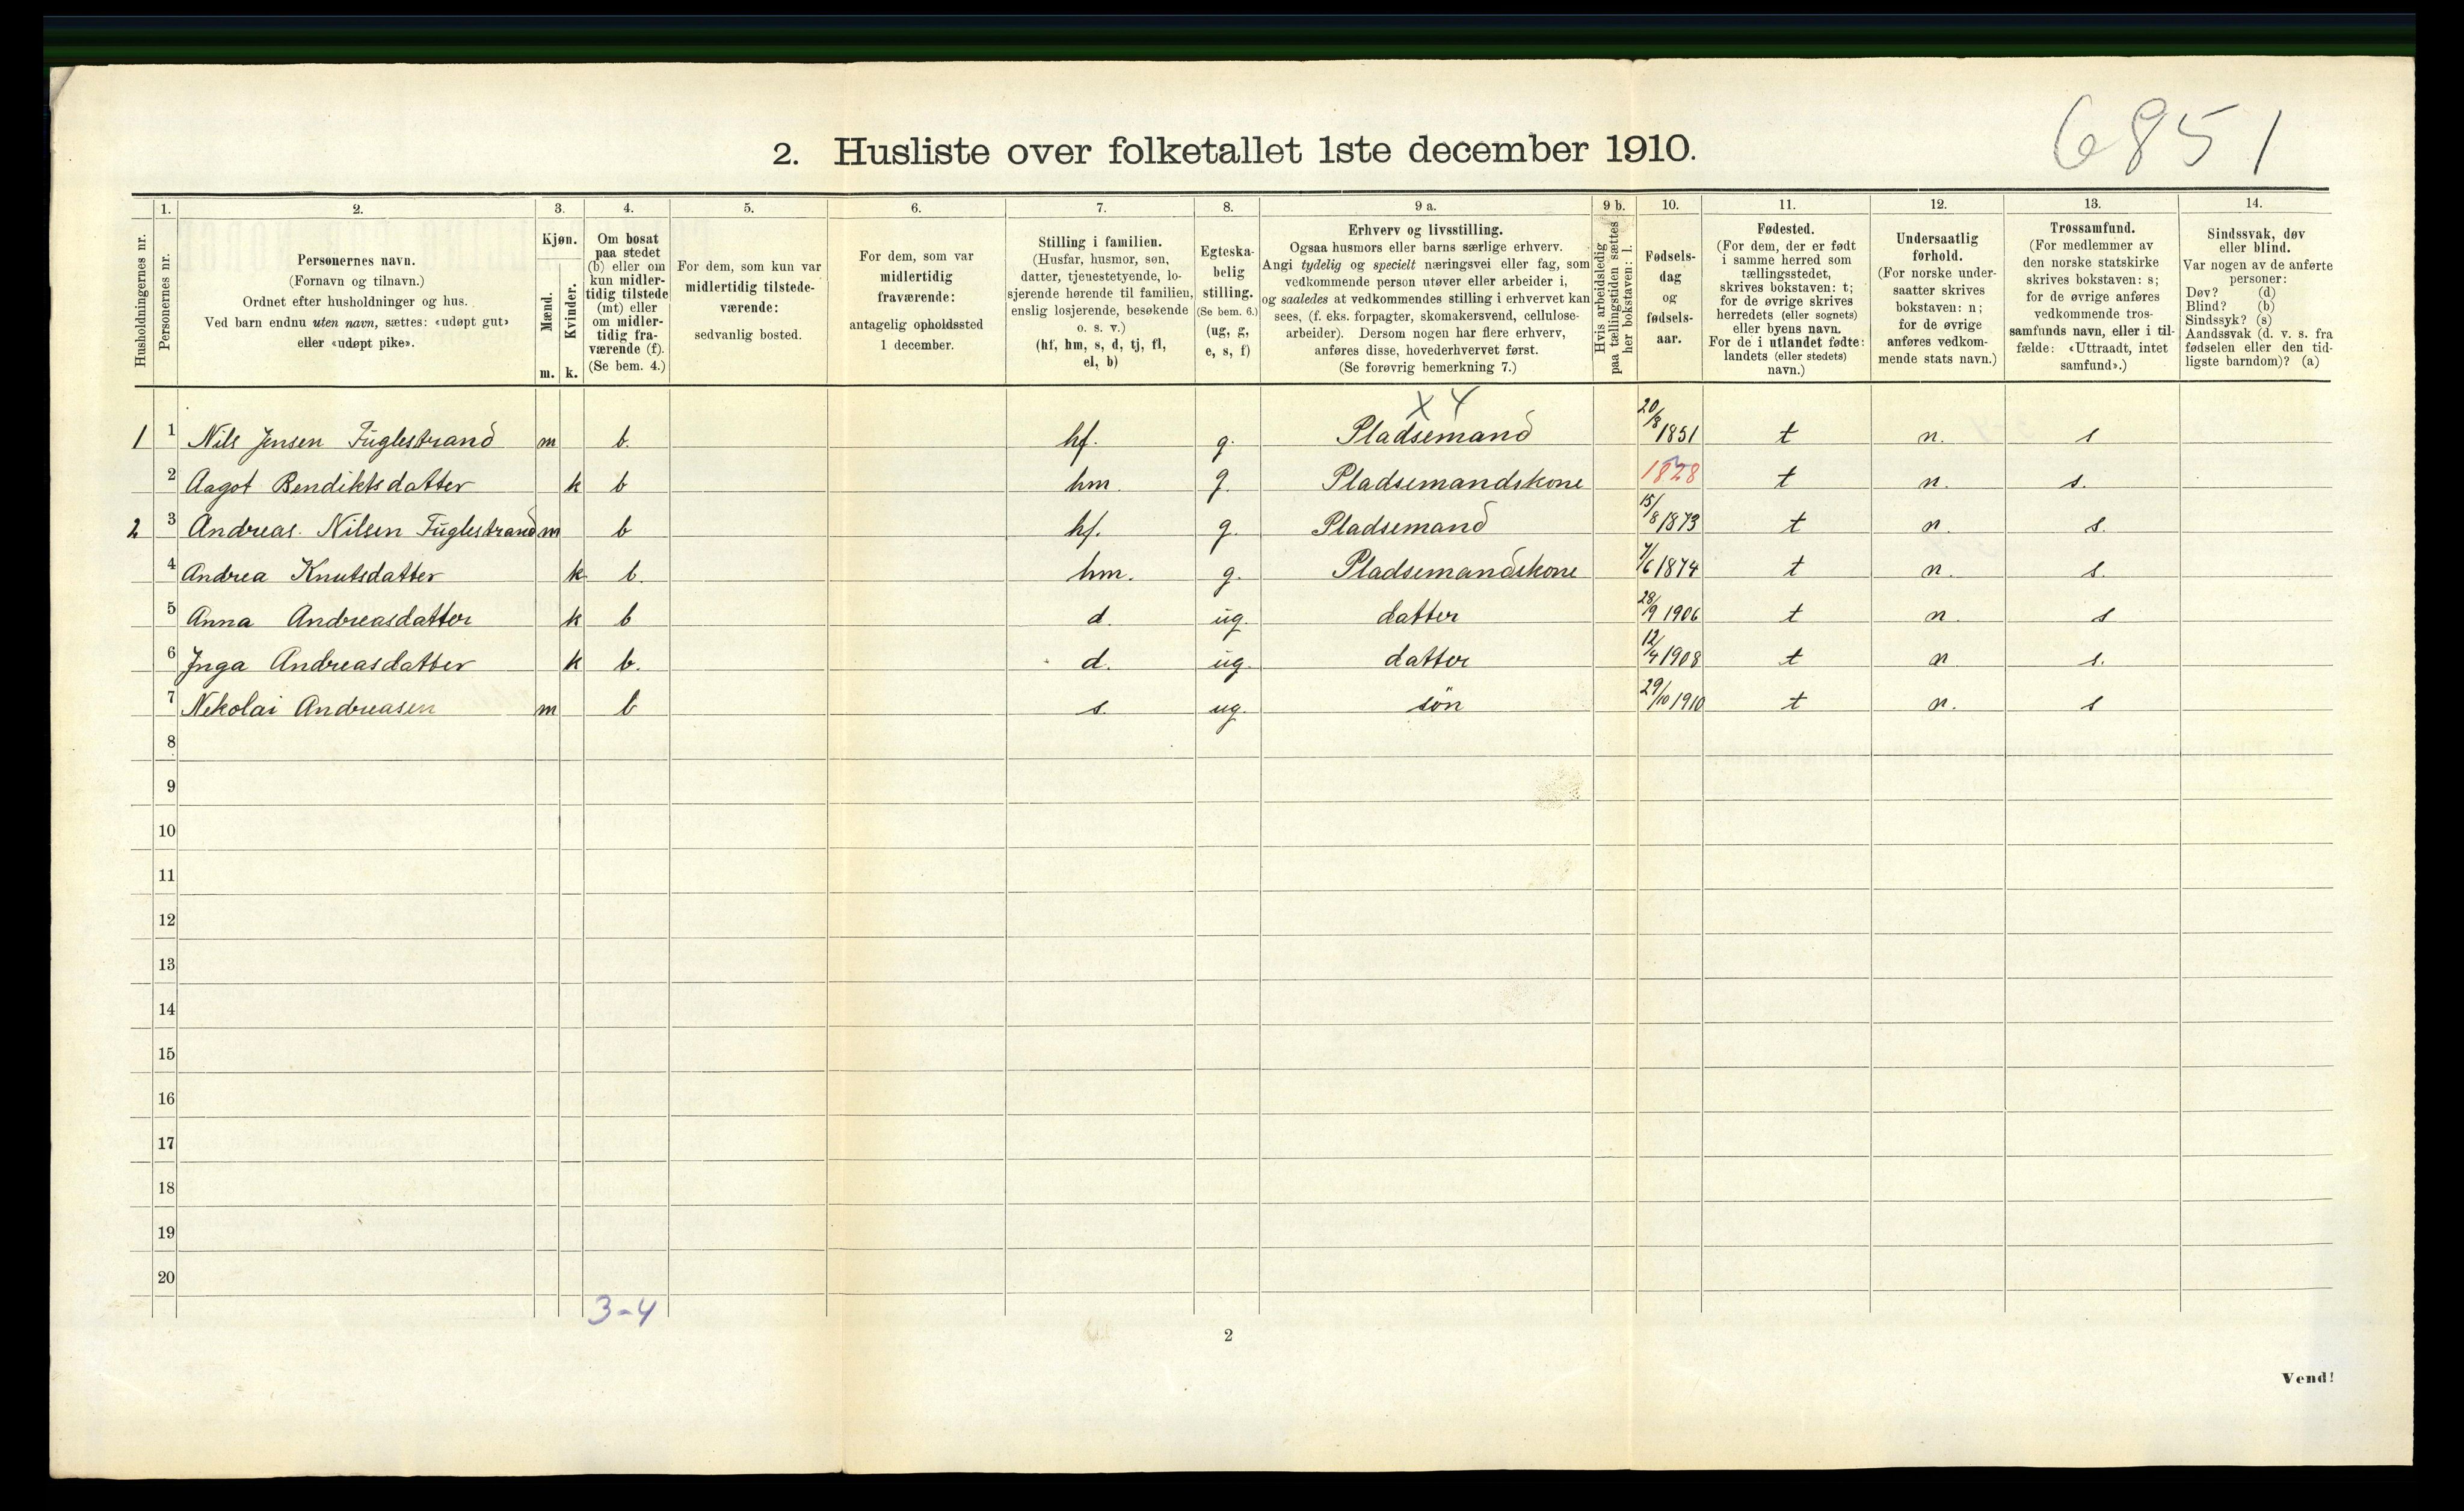 6851
2. Husliste over folketallet 1ste december 1910.
Husholdningernes nr.
1.
Personernes nr.
2.
Personernes navn.
(Fornavn og tilnavn.)
Ordnet efter husholdninger og hus.
Ved barn endnu uten navn, sættes: «udøpt gut»
eller «udøpt pike».
3.
Kjøn.
Mænd.
Kvinder.
m. k.
4.
Om bosat
paa stedet
(b) eller om
kun midler-
tidig tilstede
(mt) eller
om midler-
tidig fra-
værende (f).
(Se bem. 4.)
5.
For dem, som kun var
midlertidig tilstede-
værende:
sedvanlig bosted.
6.
For dem, som var
midlertidig
fraværende:
antagelig opholdssted
1 december.
7.
Stilling i familien.
(Husfar, husmor, søn,
datter, tjenestetyende, lo-
sjerende hørende til familien,
enslig losjerende, besøkende
o. s. v.)
(hf, hm, s, d, tj, fl,
el, b)
8.
Egteska-
belig
stilling.
(Se bem. 6.)
(ug, g,
e, s, f)
9 a.
Erhverv og livsstilling.
Ogsaa husmors eller barns særlige erhverv.
Angi tydelig og specielt næringsvei eller fag, som
vedkommende person utøver eller arbeider i,
og saaledes at vedkommendes stilling i erhvervet kan
sees, (f. eks. forpagter, skomakersvend, cellulose-
arbeider). Dersom nogen har flere erhverv,
anføres disse, hovederhvervet først.
(Se forøvrig bemerkning 7.)
9 b.
Hvis arbeidsledig
paa tællingstiden sættes
her bokstaven: l.
10.
Fødsels-
dag
og
fødsels-
aar.
11.
Fødested.
(For dem, der er født
i samme herred som
tællingsstedet,
skrives bokstaven: t;
for de øvrige skrives
herredets (eller sognets)
eller byens navn.
For de i utlandet fødte:
landets (eller stedets)
navn.)
12.
Undersaatlig
forhold.
(For norske under-
saatter skrives
bokstaven: n;
for de øvrige
anføres vedkom-
mende stats navn.)
13.
Trossamfund.
(For medlemmer av
den norske statskirke
skrives bokstaven: s;
for de øvrige anføres
vedkommende tros-
samfunds navn, eller i til-
fælde: «Uttraadt, intet
samfund».)
14.
Sindssvak, døv
eller blind.
Var nogen av de anførte
personer:
Døv? (d)
Blind? (b)
Sindssyk? (s)
Aandssvak (d. v. s. fra
fødselen eller den tid-
ligste barndom)? (a)
X 4
1 1 Nils Jensen Fuglestrand m b. hf. g. Pladsemand 20/8 1851 t n. s
2 Aagot Bendiktsdatter k b hm. g. Pladsemandskone 1828 t n. s.
2 3 Andreas. Nilsen Fuglestrand m b hf. g. Pladsemand 15/8 1873 t n. s.
4 Andrea Knutsdatter k b. hm. g. Pladsemandskone 7/6 1874 t n. s.
5 Anna Andreasdatter k b d. ug. datter 28/9 1906 t n. s
6 Inga Andreasdatter k b. d. ug. datter 12/4 1908 t n s.
7 Nekolai Andreasen m b s. ug. søn 29/10 1910 t n. s
8
9
10
11
12
13
14
15
16
17
18
19
20
3-4
2
Vend!